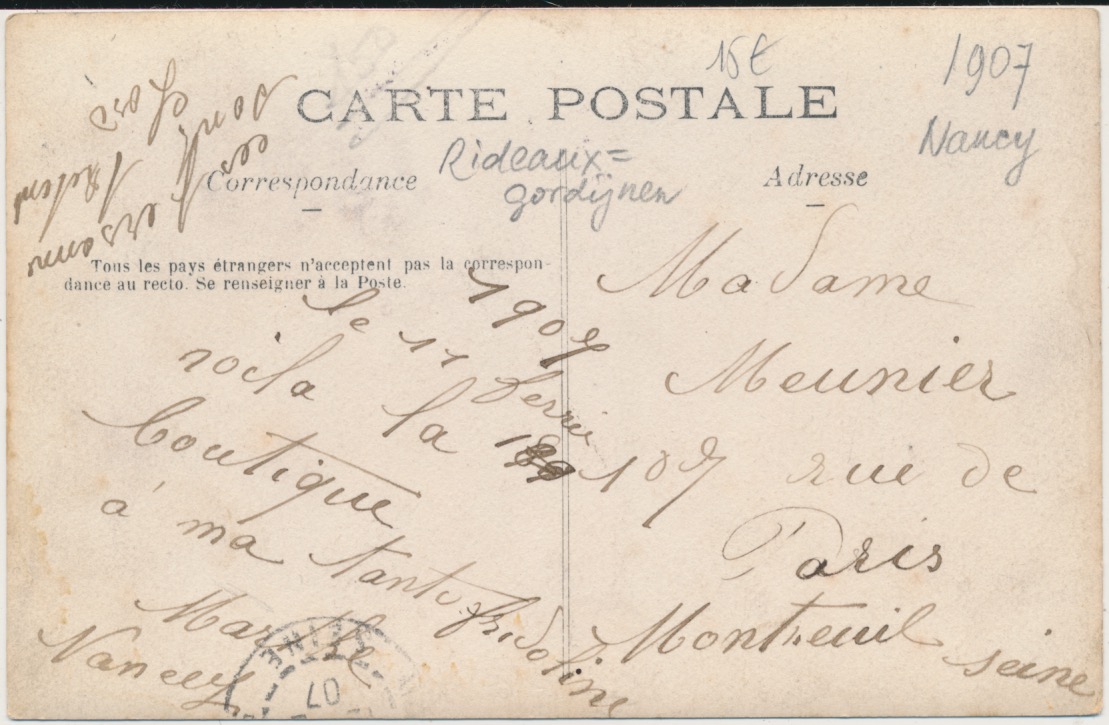 15€
1907
CARTE POSTALE
Nancy
Rideaux=
gordijnen
Correspondance
Adresse
Tous les pays étrangers n'acceptent pas la correspon-
dance au recto. Se renseigner à la Poste.
1907
le 11 
voila la
boutique
à ma tante Fridoline
Marthe
Nancy
Madame
Meunier
107 rue de
Paris
Montreuil
seine
SEINE
07